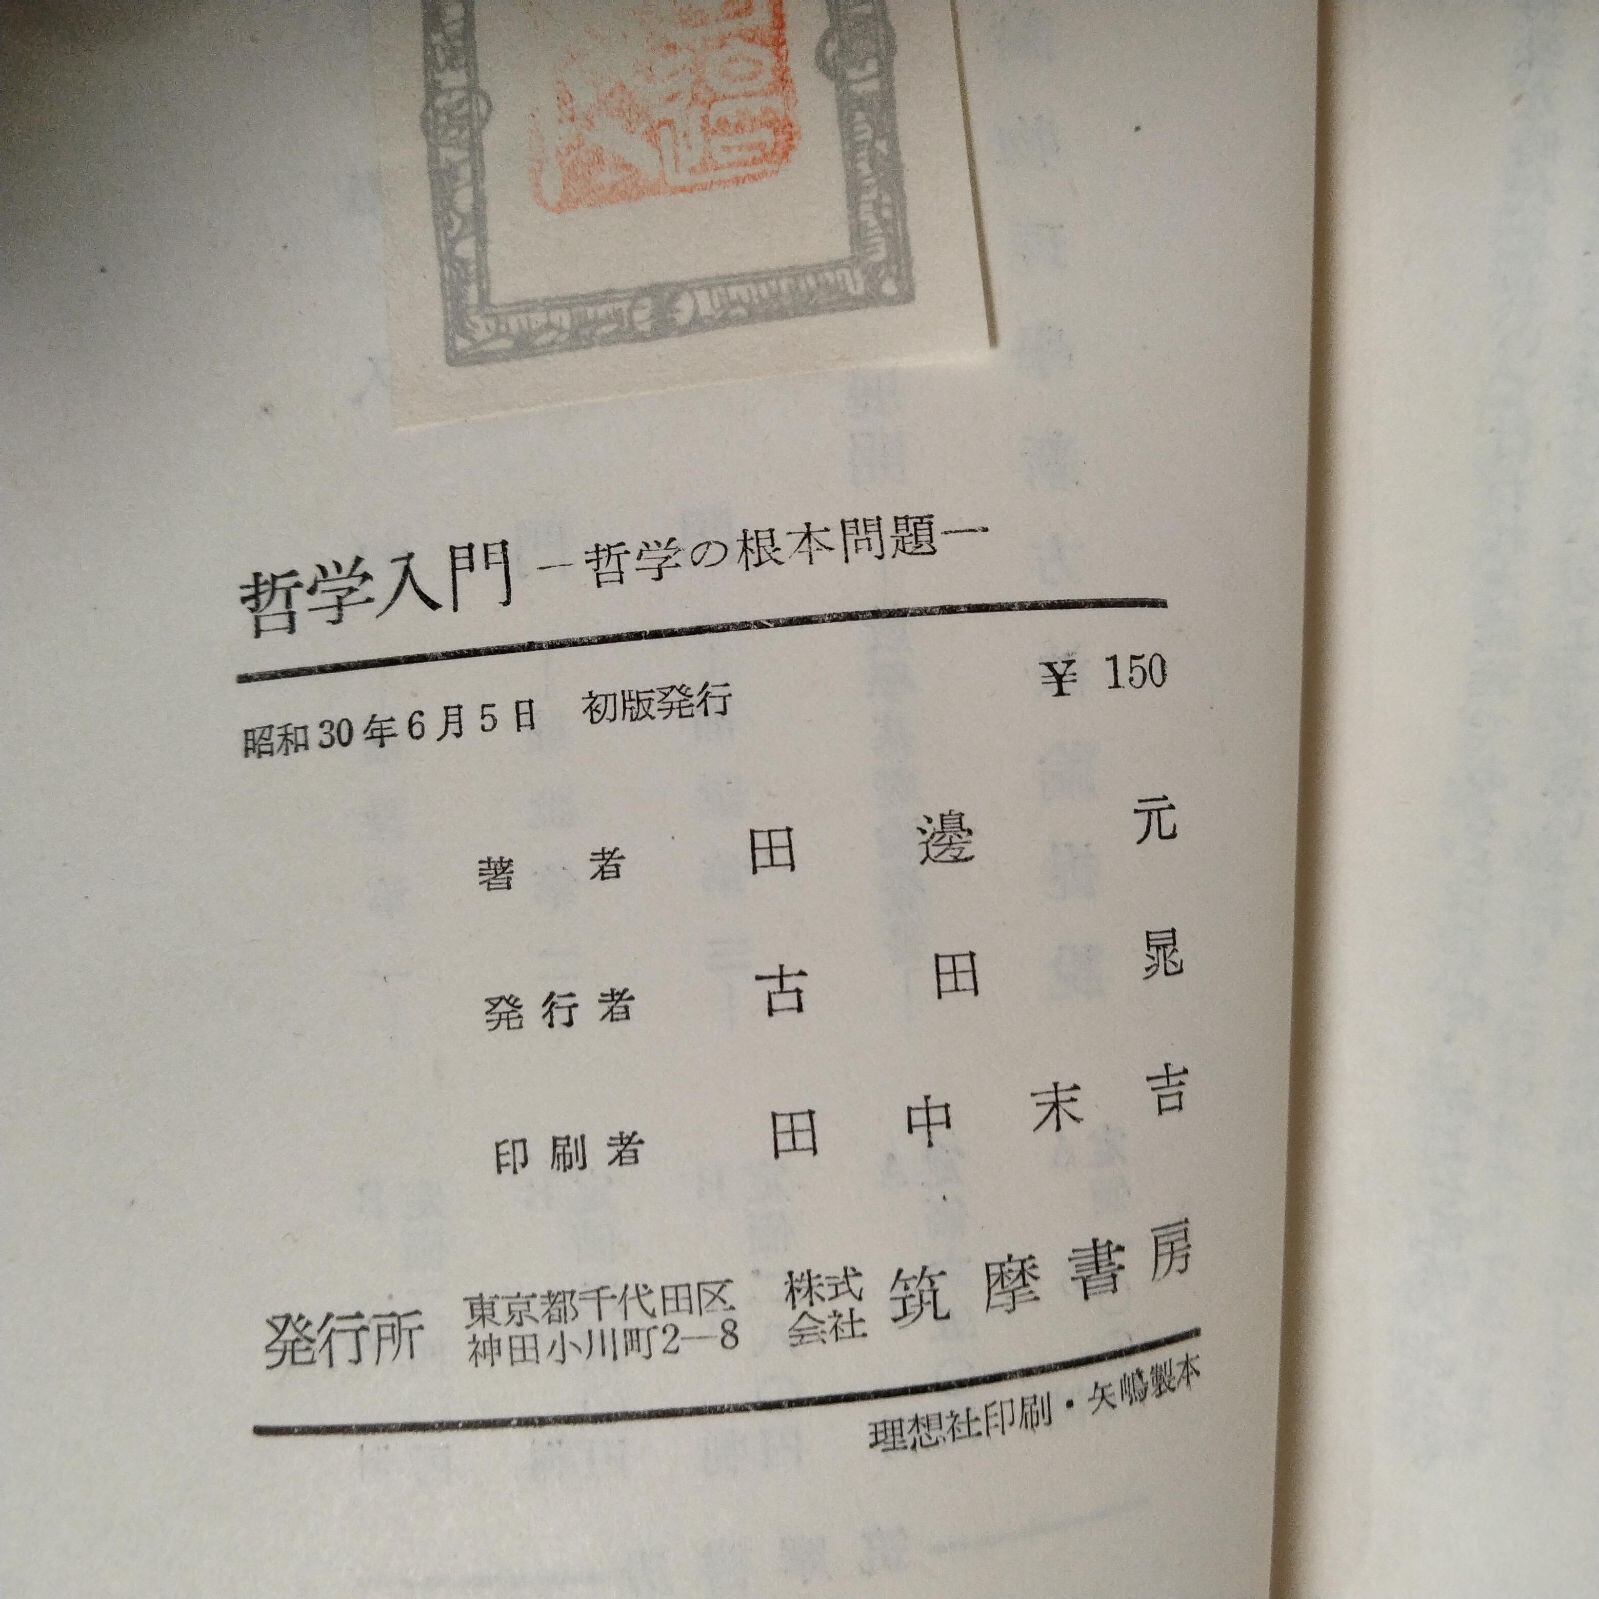 哲学入門 ―哲学の根本問題―
昭和30年6月5日 初版発行 ¥ 150
著者 田邊元
発行者 古田晁
印刷者 田中末吉
発行所 東京都千代田区神田小川町2―8 株式会社 筑摩書房
理想社印刷・矢嶋製本